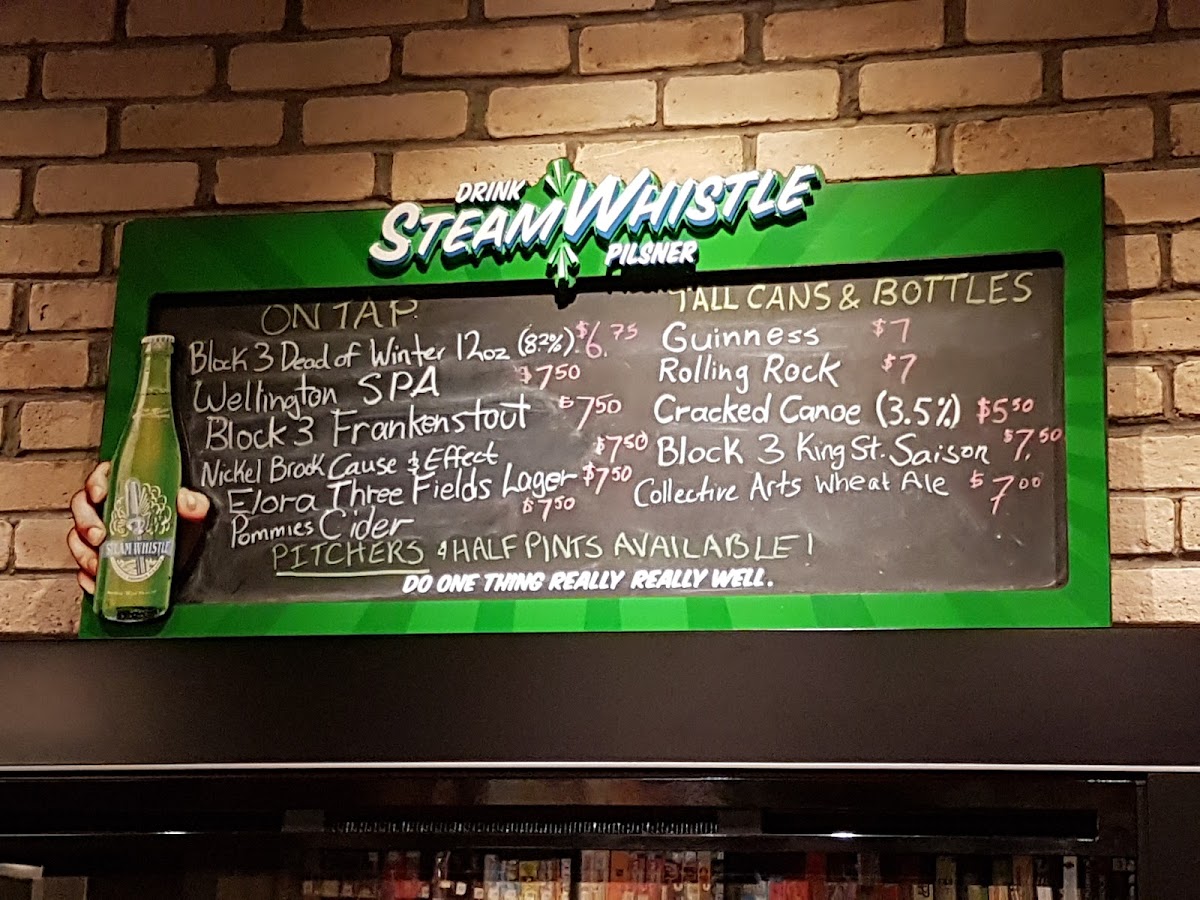 DRINK
STEAM WHISTLE
PILSNER
ON TAP
Block 3 Dead of Winter 12oz (8.2%) $6.75
Wellington SPA $7.50
Block 3 Frankenstout $7.50
Nickel Brook Cause & Effect $7.50
Elora Three Fields Lager $7.50
Pommies Cider $7.50
TALL CANS & BOTTLES
Guinness $7
Rolling Rock $7
Cracked Canoe (3.5%) $5.50
Block 3 King St. Saison $7.50
Collective Arts Wheat Ale $7.00
PITCHERS & HALF PINTS AVAILABLE!
DO ONE THING REALLY REALLY WELL.
STEAM WHISTLE